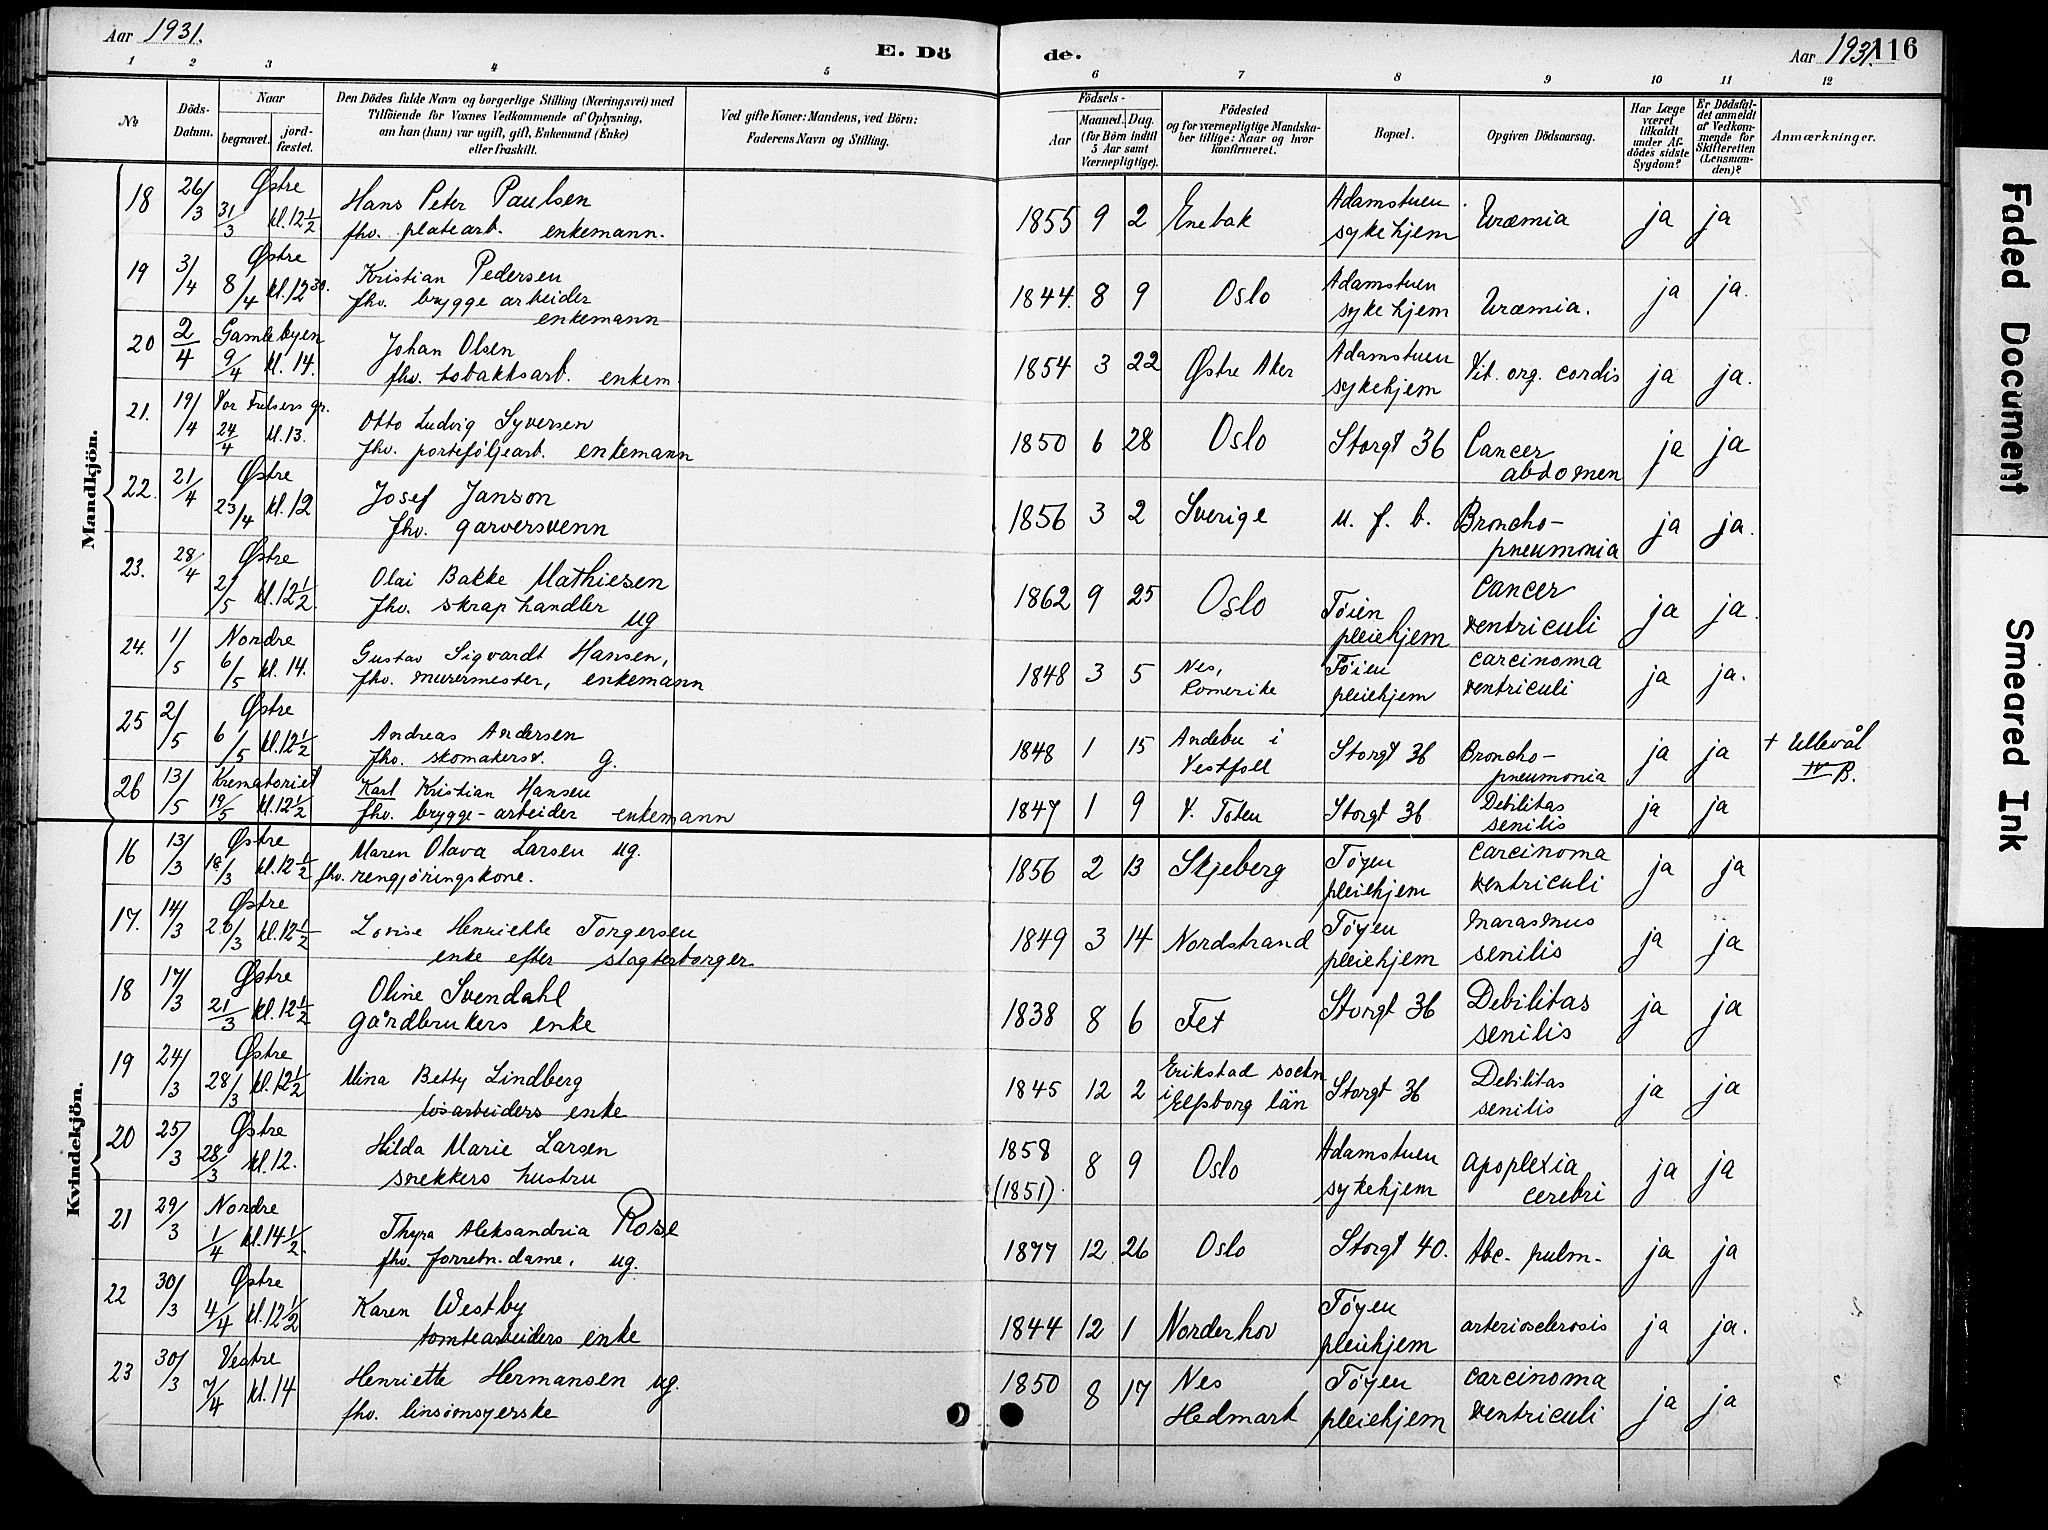 Aar 1931.
E. Dö
de.
Aar 1931.
116
1 2 3 4 5 6 7 8 9 10 11 12
No
Döds-Datum.
Naar
begravet.
jord-fæstet.
Den Dödes fulde Navn og borgerlige Stilling (Næringsvei) med
Tilföiende for Voxnes Vedkommende af Oplysning,
om han (hun) var ugift, gift, Enkemand (Enke)
eller fraskilt.
Ved gifte Koner: Mandens, ved Börn:
Faderens Navn og Stilling.
Födsels-
Aar
Maaned. Dag.
(for Börn indtil
5 Aar samt
Værnepligtige).
Födested
og for værnepligtige Mandska-
ber tillige: Naar og hvor
konfirmeret.
Bopæl.
Opgiven Dödsaarsag.
Har Læge
været
tilkaldt
under Af-
dödes sidste
Sygdom?
Er Dödsfal-
det anmeldt
af Vedkom-
mende for
Skifteretten
(Lensman-
den)?
Anmærkninger.
Mandkjön.
18 26/3 Østre 31/3 kl. 12½ Hans Peter Paulsen
fhv. platearb. enkemann.
1855 9 2 Enebak Adamstuen sykehjem Uræmia ja ja
19 3/4 Østre 8/4 kl. 12³⁰. Kristian Pedersen
fhv. brygge arbeider
enkemann
1844. 8 9 Oslo Adamstuen sykehjem Uræmia. ja ja.
20 2/4 Gamlebyen 9/4 kl. 14. Johan Olsen
fhv. tobakksarb. enkem.
1854 3 22 Østre Aker Adamstuen sykehjem Vit. org. cordis ja ja.
21. 19/4 Vor Frelsers gr. 24/4 kl. 13. Otto Ludvig Syversen
fhv. porteføljearb. enkemann
1850 6 28 Oslo Storgt 36 Cancer abdomen ja ja
22. 21/4 Østre 23/4 kl. 12 Josef Janson
fhv. garversvenn
1856 3 2 Sverige u. f. b. Broncho-pneumonia ja ja.
23. 28/4 Østre 2/5 kl. 12½. Olai Bakke Mathiesen
fhv. skraphandler ug
1862 9 25 Oslo Tøien pleiehjem Cancer ventriculi ja ja.
24. 1/5 Nordre 6/5 kl. 14. Gustav Sigvardt Hansen,
fhv. murermester, enkemann
1848 3 5 Nes, Romerike Tøien pleiehjem carcinoma ventriculi ja ja.
25 2/5 Østre 6/5 kl. 12½ Andreas Andersen
fhv. skomakersv. g.
1848 1 15 Andebu i Vestfold Storgt 36 Broncho-pneumonia ja ja + Ullevål IV B.
26 13/5 Krematoriet 19/5 kl. 12½ Karl Kristian Hansen
fhv. brygge-arbeider enkemann
1847 1 9 V. Toten Storgt 36 Debilitas senilis ja ja
Kvindekjön.
16 13/3 Østre 18/3 kl. 12½ Maren Olava Larsen ug.
fhv. rengjøringskone.
1856 2 13 Skjeberg Tøyen pleiehjem carcinoma ventriculi ja ja
17. 14/3 Østre 20/3 kl. 12½ Lovise Henriette Torgersen
enke efter slagterborger
1849 3 14 Nordstrand Tøyen pleiehjem marasmus senilis ja ja
18 17/3 Østre 21/3 kl. 12½ Oline Svendahl
gårdbrukers enke
1838 8 6 Fet Storgt 36 Debilitas senilis ja ja
19 24/3 Østre 28/3 kl. 12½ Mina Betty Lindberg
løsarbeiders enke
1845 12 2 Erikstad sockn i Elfsborg län Storgt 36 Debilitas senilis ja ja
20 25/3 Østre 28/3 kl. 12. Hilda Marie Larsen
snekkers hustru
1858 (1851). 8 9 Oslo Adamstuen sykehjem apoplexia cerebri ja ja
21 29/3 Nordre 1/4 kl. 14½. Thyra Aleksandria Rose
fhv. forretn. dame, ug.
1877 12 26 Oslo Storgt 40. Tbc. pulm- ja ja
22 30/3 Østre 4/4 kl. 12½ Karen Westby
tomtearbeiders enke
1844 12 1 Norderhov Tøyen pleiehjem arteriosclerosis ja ja.
23 30/3 Vestre 7/4 kl. 14 Henriette Hermansen ug.
fhv. linsømsyerske
1850 8 17 Nes Hedmark Tøyen pleiehjem carcinoma ventriculi ja ja
Faded Document
Smeared Ink